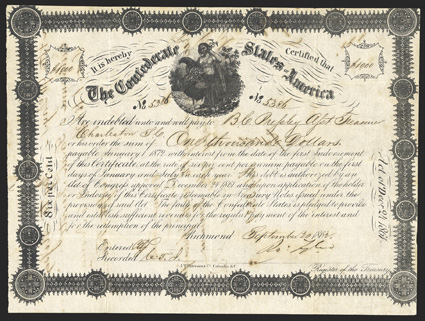 It is hereby Certified that
The Confederate States of America
$1000 $1000
No. 5386 No. 5386
Are indebted unto and will pay to B. C. Pressley Asst Treasurer
Charleston S.C.
or his order the sum of One thousand Dollars
payable January 1st 1872 with interest from the date of the first Indorsement
of this Certificate at the rate of six per cent per annum payable on the first
days of January and July in each year. This debt is authorized by an
Act of Congress approved December 24 1861 which upon application of the holder
or Indorsee of this Certificate
provisions of said Act. The faith of the Confederate States is pledged to provide
and establish sufficient revenues for the regular payment of the interest and
for the redemption of the principal.
Richmond September 186
Entered
Recorded
Register of the Treasury
Six per Cent
Act of Dec. 24, 1861